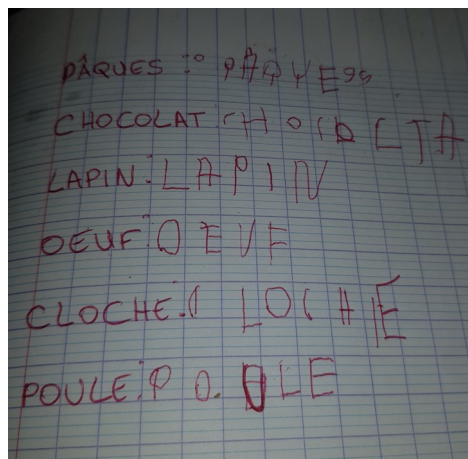 PÂQUES : PÂQYESS
CHOCOLAT : CHOCOLTA
LAPIN : LAPIN
OEUF : OEUF
CLOCHE : CLOCHE
POULE : POULE